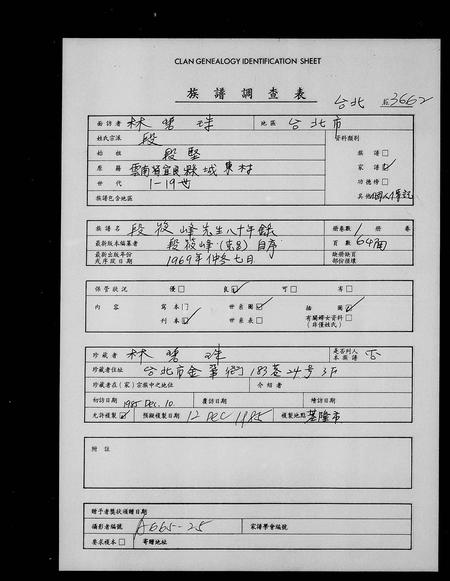 CLAN GENEALOGY IDENTIFICATION SHEET
族譜調查表
台北 3662
面訪者 林 珠 地區 台北市
姓氏宗派 段 資料類別
始祖 段堅 族譜□
原籍 雲南省宜良縣城東村 家譜☑
世代 1-19世 功德榜□
族譜包含地區 其他 個人傳記
族譜名 段筱峰先生八十年錄 冊卷數 1 冊 卷
最新版本編纂者 段筱峰 自序 頁數 64面
最新出版年份或序跋日期 1969年仲冬七日 缺冊缺頁部份損壞
保管狀況 優□ 良☑ 可□ 劣□
內容 寫本□ 世系圖☑ 插圖☑
刊本☑ 世系表□ 有關婦女資料□ (非僅姓氏)
珍藏者 林 珠 是否列入本族譜 否
珍藏者住址 台北市金華街183巷24号3F
珍藏者在(家)宗族中之地位 介紹者
初訪日期 1985 Dec. 10. 覆訪日期 續訪日期
允許複製☑ 預擬複製日期 12 DEC 1985 複製地點 基隆市
附註
贈予者獎狀頒贈日期
攝影者編號 A665-25 家譜學會編號
要求複本□ 寄贈地址